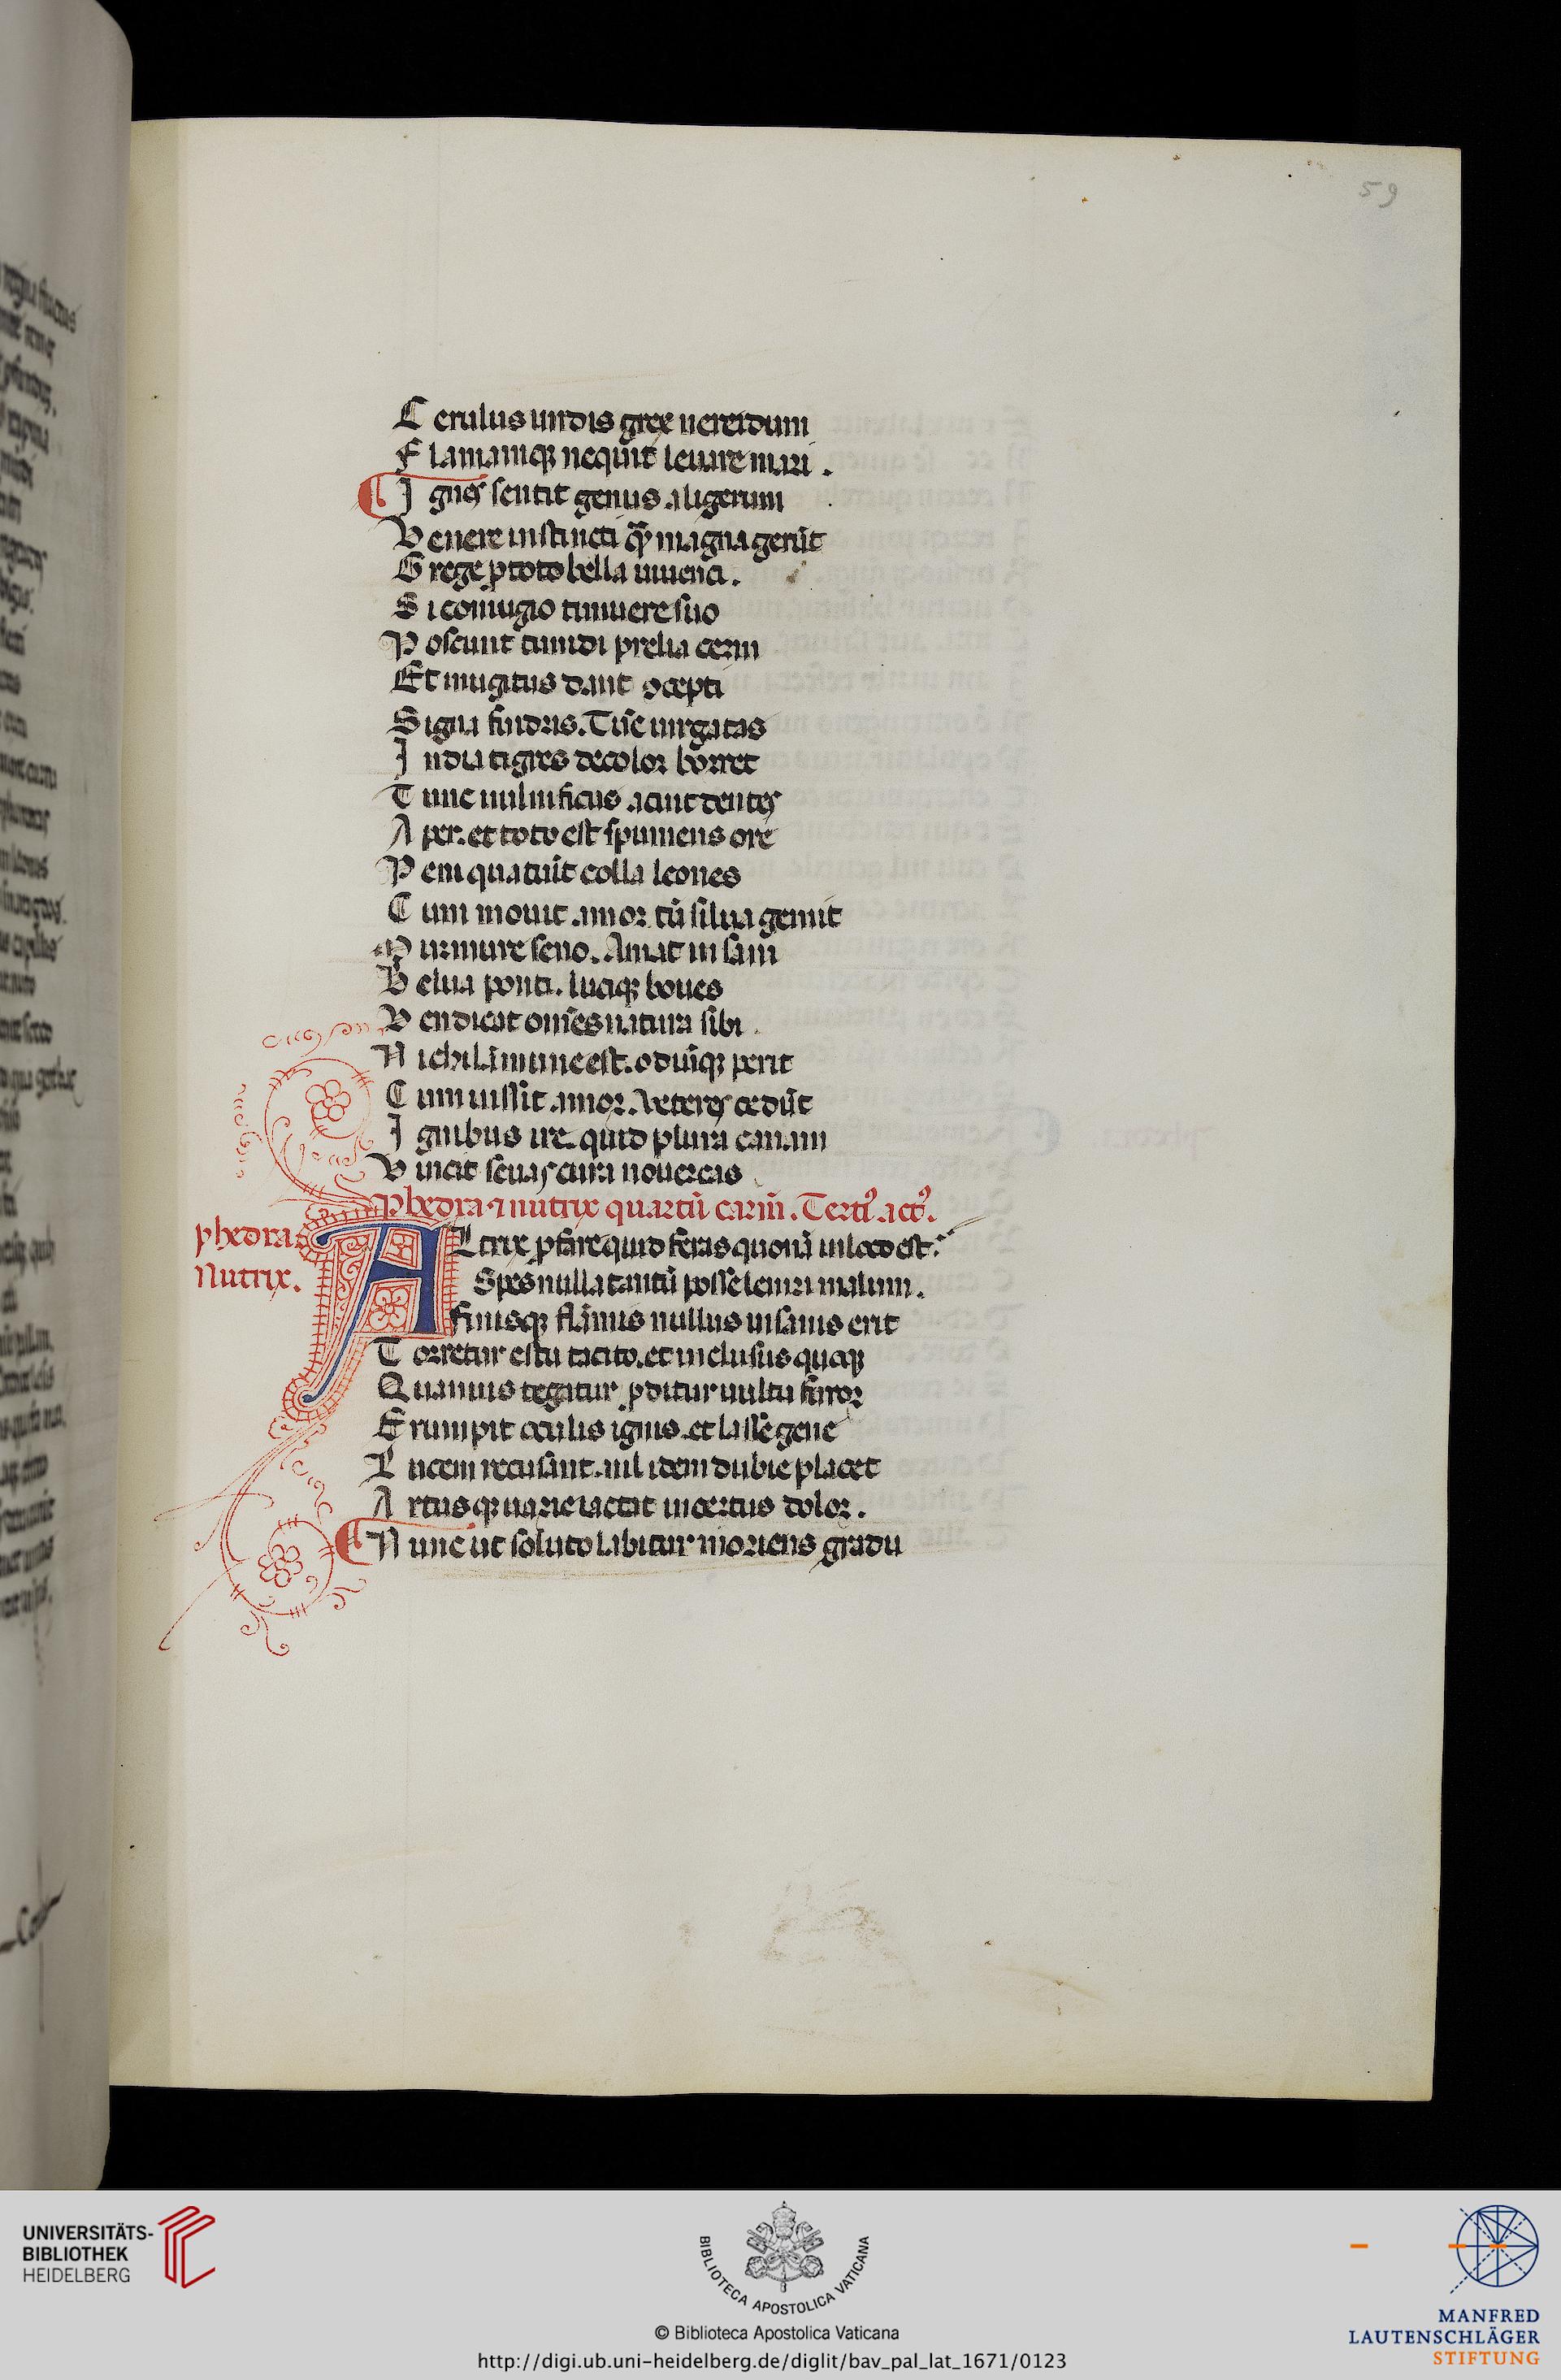 59
C erulus undis grex nereidum
F lamamqꝫ nequit leuare mari.
I gnes sentit genus aligerum
V enere instincti qͣm magna gerūt
G rege ꝓ toto bella iuuenci.
S i coniugio timuere suo
P oscunt timidi prelia cerui
Et mugitus dant ꝯcepti
Signa furoris. Tūc uirgatas
I ndia tigres decolor horret
T unc uulnificus acuit dentes
A per. et toto est spumeus ore
P eni quatiūt colla leones
C um mouit amor. tū silua gemit
M urmure seuo. Amat insani
B elua ponti. luciqꝫ boues
V endicat om̄es natura sibi.
N ichil īmune est. odiūqꝫ perit
C um iussit amor. Veteres cedūt
I gnibus ire. quid plura canam
V incit seuas cura nouercas
Phedra ⁊ nutrix quartū carm̄. Tertiꝰ actꝰ.
phedra
Nutrix.
ALtrix ꝓfare quid feras quonā in loco est.
Spes nulla tantū posse leniri malum.
finisqꝫ flām̄is nullus insanis erit
T orretur estu tacito. et inclusus quoqꝫ
Q uamuis tegatur ꝓditur uultu furor
E rumpit oculis ignis. et lasse gene
L ucem recusant. nil idem dubie placet
A rtusqꝫ uarie iactat incertus dolor.
N unc ut soluto labitur moriens gradu
UNIVERSITÄTS-
BIBLIOTHEK
HEIDELBERG
BIBLIOTECA APOSTOLICA VATICANA
© Biblioteca Apostolica Vaticana
http://digi.ub.uni-heidelberg.de/diglit/bav_pal_lat_1671/0123
MANFRED
LAUTENSCHLÄGER
STIFTUNG